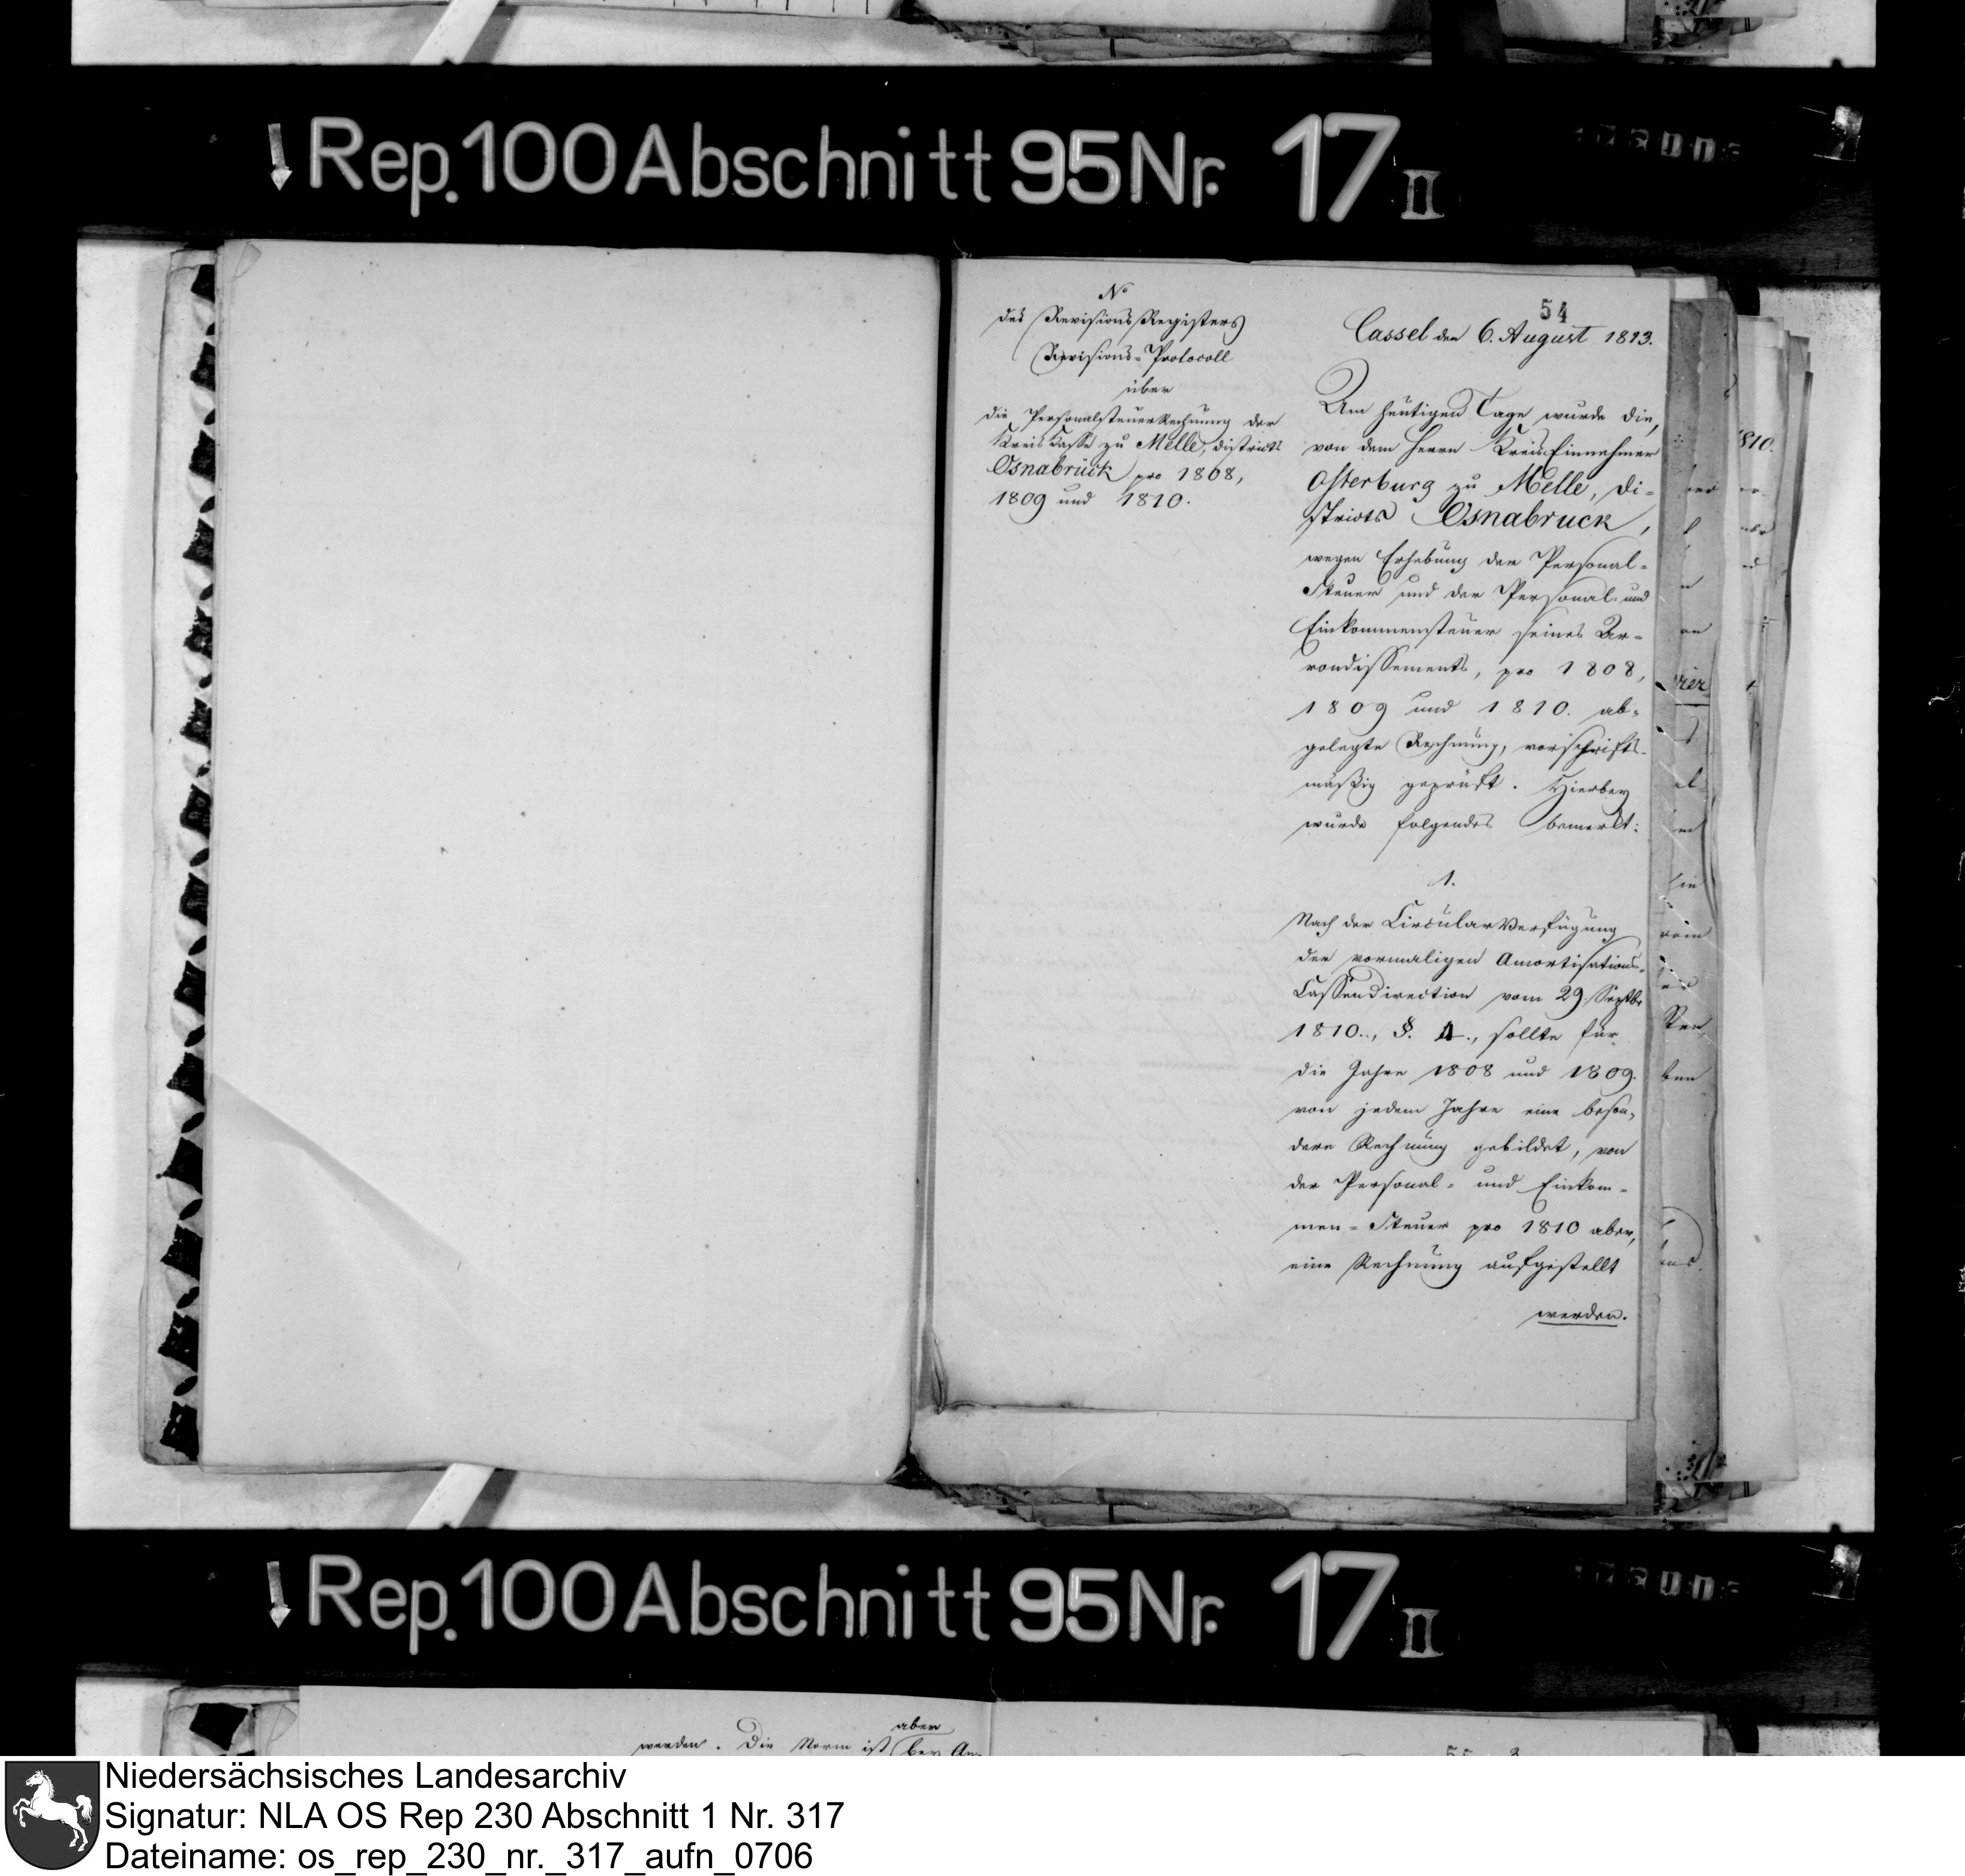 Rep. 100 Abschnitt 95 Nr. 17 II
No
des Revisions Registers
Revisions-Protocoll
über
die Personalsteuer Rechnung der
Kreis Casse zu Melle, districts
Osnabrück pro 1808,
1809 und 1810.
54
Cassel den 6. August 1813.
Am heutigen Tage wurde die,
von dem Herrn Kreis Einnehmer
Osterburg zu Melle, Di-
stricts Osnabruck,
wegen Erhebung der Personal-
Steuer und der Personal- und
Einkommensteuer seines Ar-
rondissements, pro 1808,
1809 und 1810. ab-
gelegte Rechnung, vorschrifts-
mäßig geprüft. Hierbey
wurde folgendes bemerkt:
1.
Nach der Circular Verfügung
der vormaligen Amortisations-
Cassendirection vom 29 Septbr
1810., §. 4., sollte für
die Jahre 1808 und 1809.
von jedem Jahre eine beson-
dere Rechnung gebildet, von
der Personal- und Einkom-
men-Steuer pro 1810 aber,
eine Rechnung aufgestellt
werden.
1810.
Rep. 100 Abschnitt 95 Nr. 17 II
aber
werden. Die Norm ist bey An-
55
Niedersächsisches Landesarchiv
Signatur: NLA OS Rep 230 Abschnitt 1 Nr. 317
Dateiname: os_rep_230_nr._317_aufn_0706